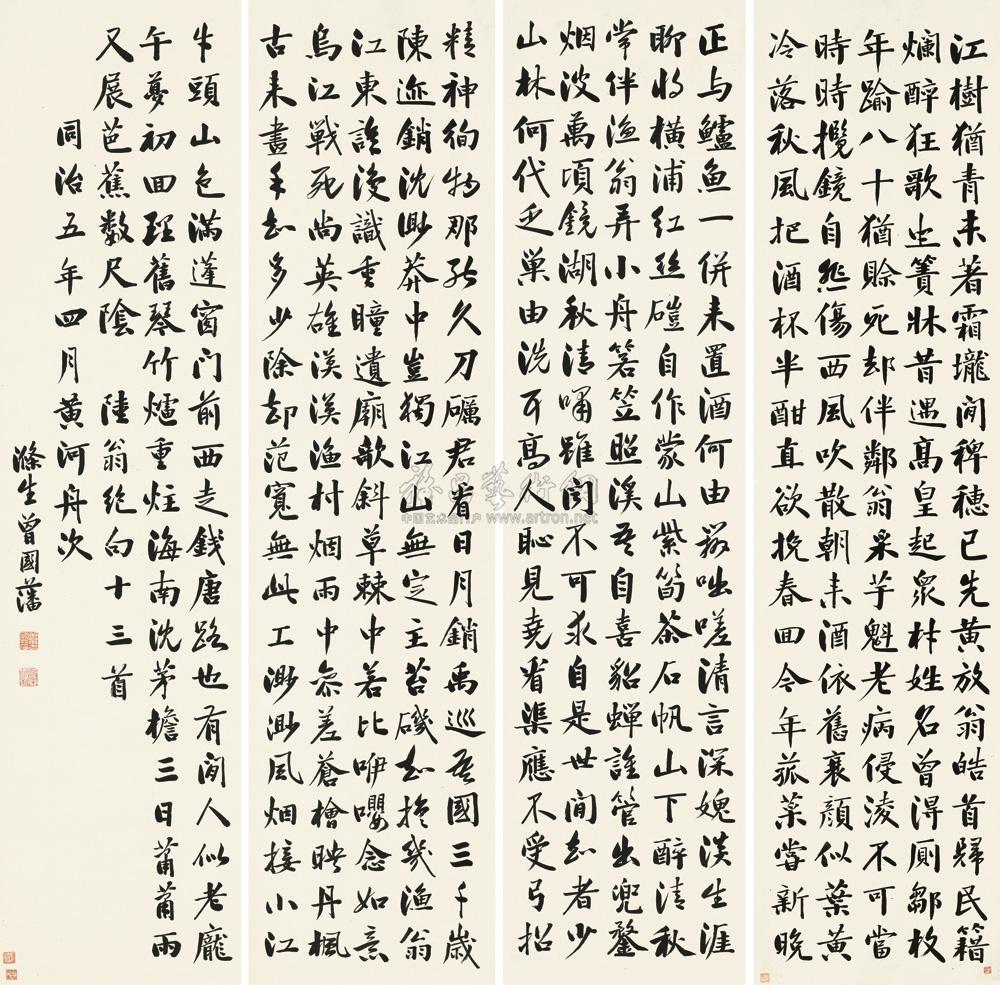 江樹猶青未著霜壠閒稗穗已先黃放翁皓首歸民籍
爛醉狂歌坐簀牀昔遇高皇起眾材姓名曾得廁鄒枚
年踰八十猶賒死却伴鄰翁果芋魁老病侵淩不可當
時時攬鏡自悲傷西風吹散朝来酒依舊衰顏似葉黃
冷落秋風把酒杯半酣直欲挽春回今年菰菜嘗新晚
正与鱸魚一併来置酒何由辦咄嗟清言深媿淡生涯
聊將橫浦紅絲磑自作蒙山紫筍茶石帆山下醉清秋
常伴漁翁弄小舟箬笠照溪吾自喜貂蟬誰管出兜鍪
烟波萬頃鏡湖秋清嘯雖聞不可求自是世閒知者少
山林何代乏巢由洗耳高人恥見堯看渠應不受弓招
精神徇物那能久刀礪君看日月銷禹巡吾國三千歲
陳迹銷沈渺莽中豈獨江山無定主苔磯知換幾漁翁
江東誰復識重瞳遺廟欹斜草棘中若比咿嚶念如意
烏江戰死尚英雄漠漠漁村烟雨中參差蒼檜映丹楓
古来畫手知多少除却范寬無此工渺渺風烟接小江
牛頭山色滿蓬窗門前西走錢唐路也有閒人似老龐
午夢初回理舊琴竹爐重炷海南沈茅檐三日蕭蕭雨
又展芭蕉數尺陰 陸翁絕句十三首
同治五年四月黃河舟次
滌生曾國藩
www.artron.net